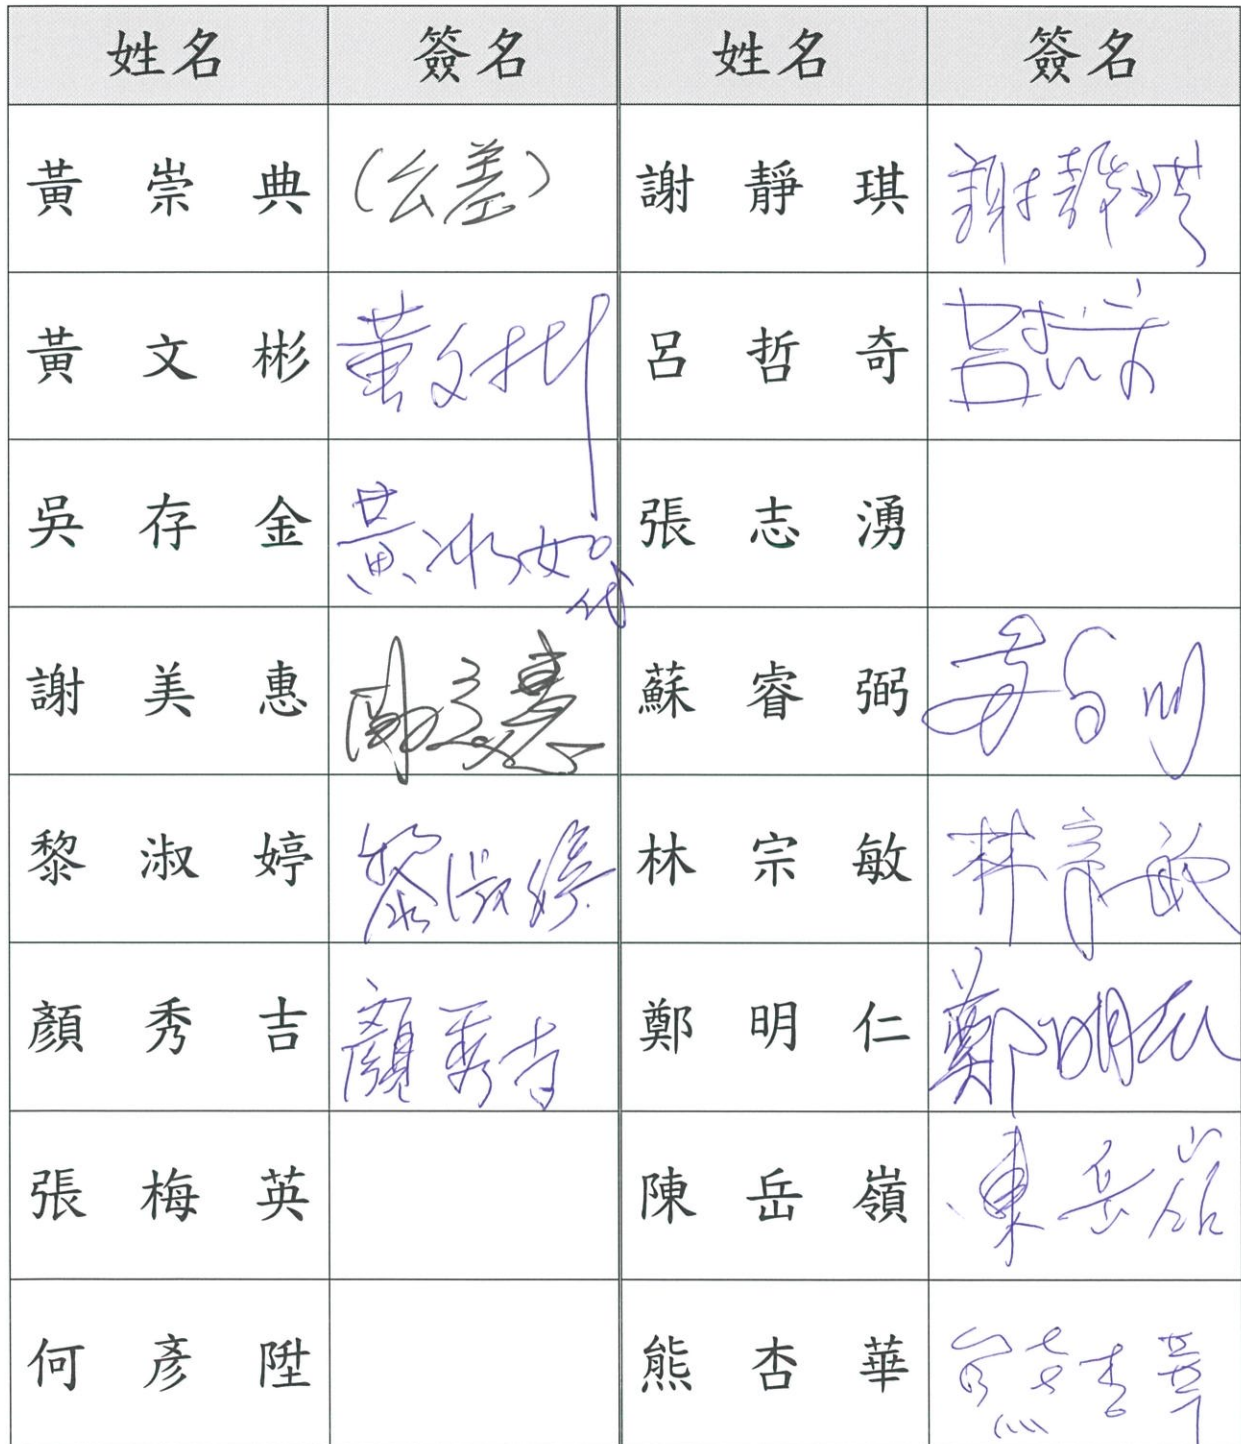 姓名 簽名 姓名 簽名
黃崇典 (公差) 謝靜琪 謝靜琪
黃文彬 黃文彬 呂哲奇 呂哲奇
吳存金 黃冰如代 張志湧
謝美惠 謝美惠 蘇睿弼
黎淑婷 黎淑婷 林宗敏 林宗敏
顏秀吉 顏秀吉 鄭明仁 鄭明仁
張梅英 陳岳嶺 陳岳嶺
何彥陞 熊杏華 熊杏華